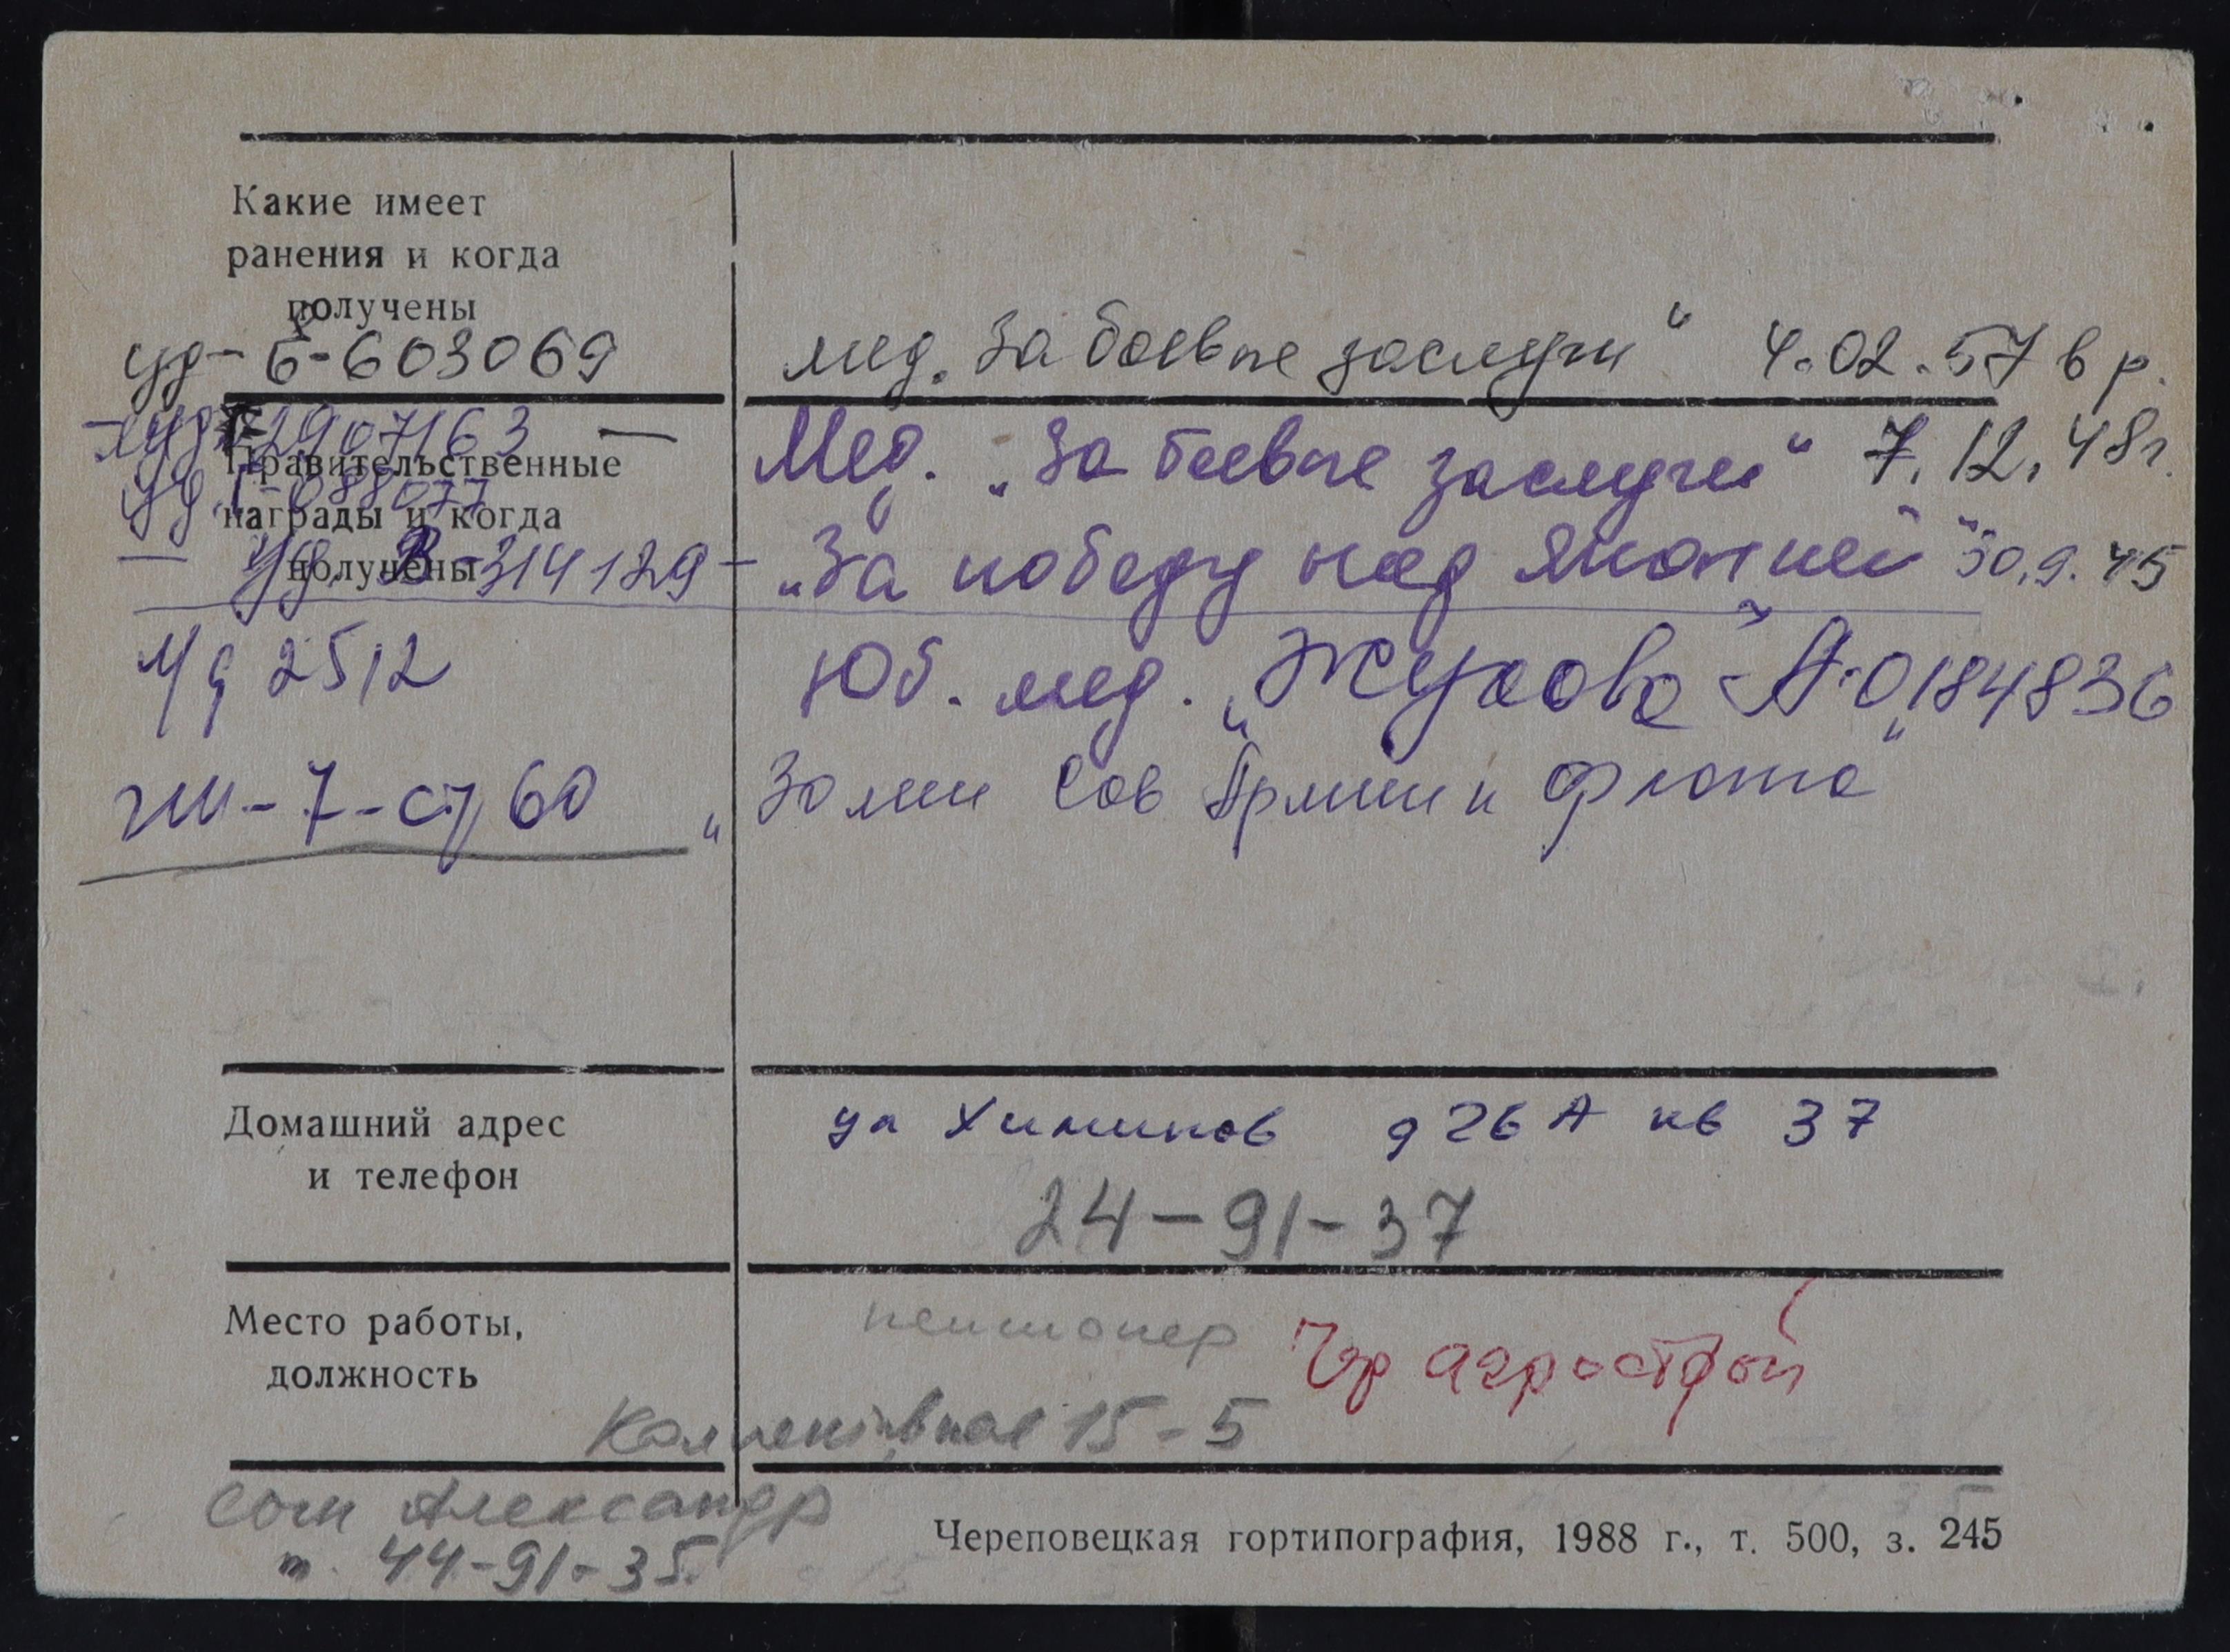 Какие имеет
ранения и когда
получены
уд-Б-603069 мед. За боевые заслуги" 4.02.57 в р.
2907163 — Мед. „За боевые заслуги" 7.12.48г.
Правительственные
уд. Г-088077
награды и когда
получены
— Уд. В-314129 - „За победу над Японией" 30.9.45
Уд 2512 Юб. мед. „Жукова" А-0184836
60 „30 лет Сов Армии и Флота"
Домашний адрес
и телефон
ул Химиков д 26 А кв 37
24-91-37
Место работы,
должность
пенсионер Чер агрострой
Коллективная 15-5
сын Александр
т. 44-91-35.
Череповецкая гортипография, 1988 г., т. 500, з. 245